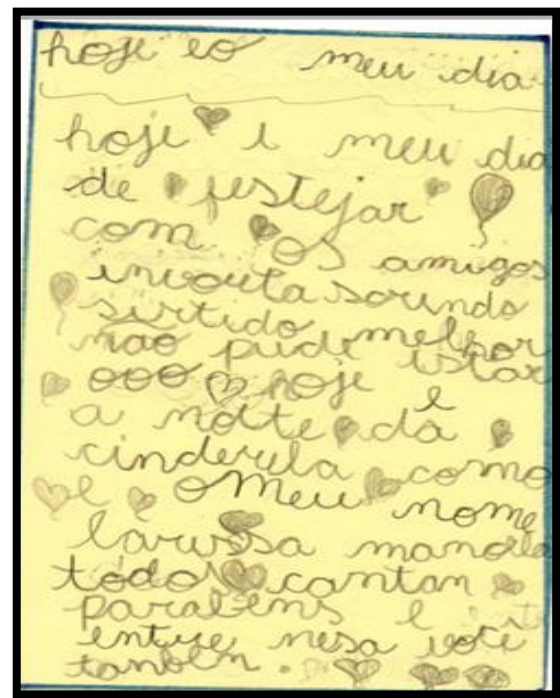 hoje eo meu dia
hoje é meu dia
de festejar
com os amigos
invouta sorindo
sirtido melhor
não pude istar
ooo hoje é
a noite da
cinderela como
e o meu nome
larissa manoela
todos cantan
parabens e
entre nesa você
tanbem.